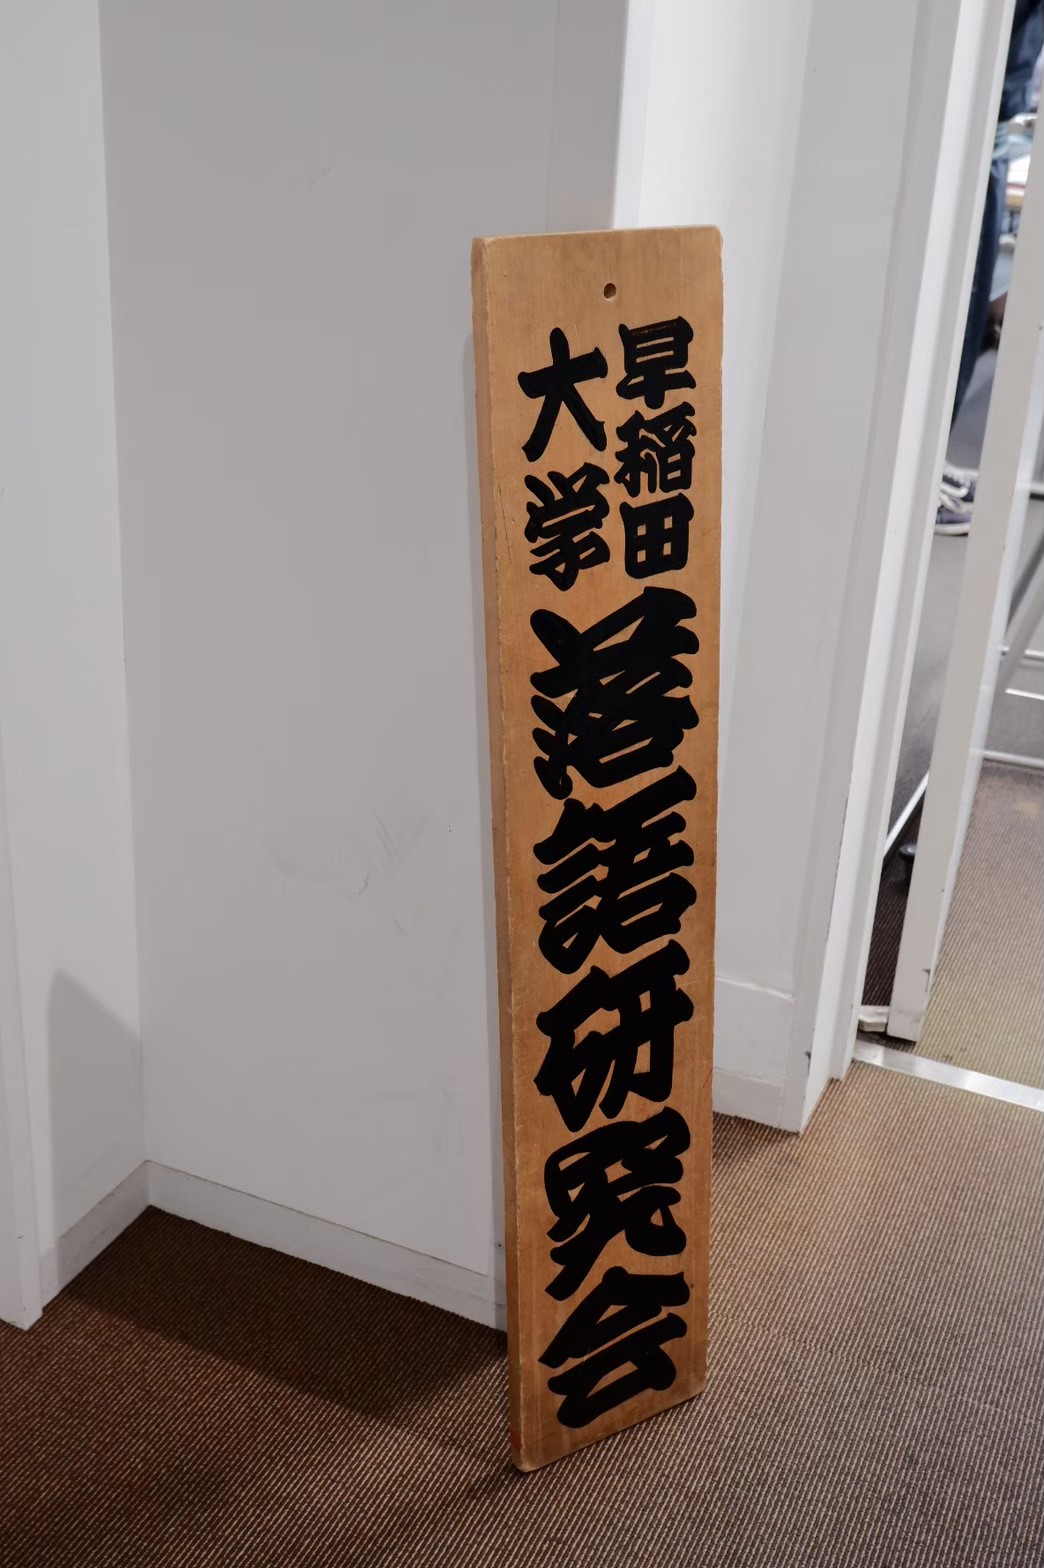 早稲田
大学
落語研究会